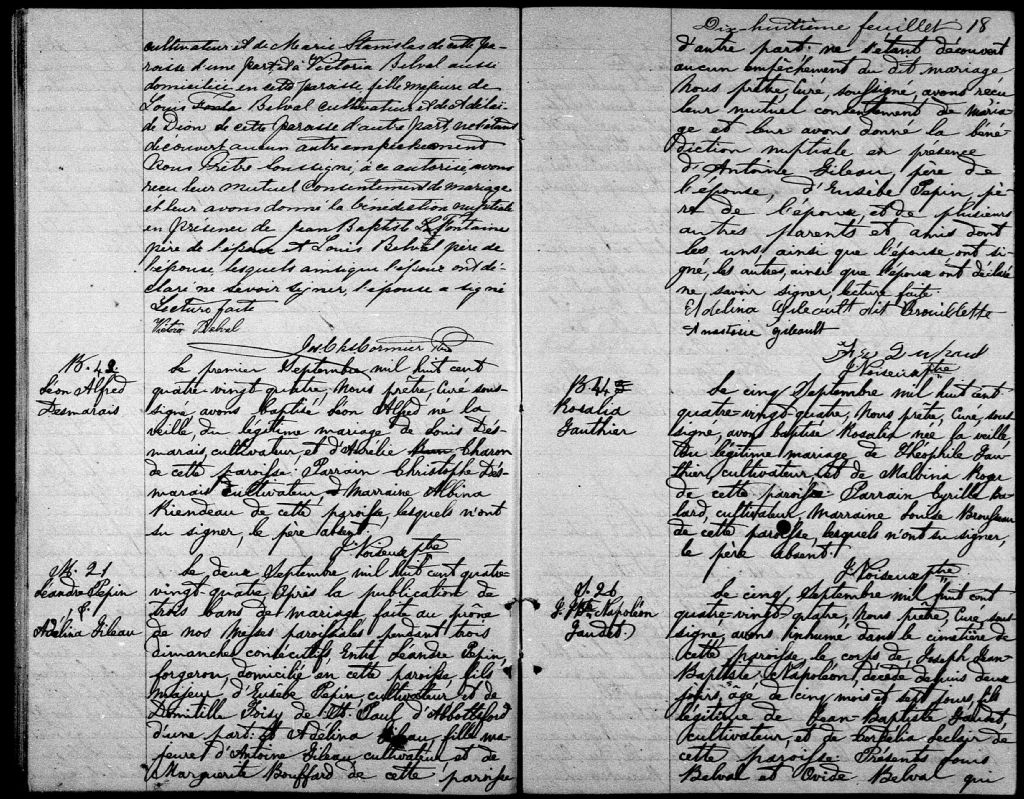 cultivateur et de Marie Stanislas de cette pa-
roisse d'une part, et à Victoria Belval aussi
domiciliée en cette paroisse, fille majeure de
Louis Belval cultivateur et de Adélaï-
de Dion de cette paroisse d'autre part, ne s'étant
découvert aucun autre empêchement
Nous Prêtre soussigné, à ce autorisé, avons
reçu leur mutuel consentement de mariage
et leur avons donné la bénédiction nuptiale
en présence de Jean Baptiste Lafontaine
père de l'époux et Louis Belval père de
l'épouse, lesquels ainsi que l'époux ont dé-
claré ne savoir signer, l'épouse a signé
Lecture faite
Victoria Belval
Jos. Chs Cormier Ptre
B. 42.
Léon Alfred
Desmarais
Le premier Septembre mil huit cent
quatre-vingt quatre, Nous prêtre, Curé sous-
signé avons baptisé Léon Alfred né la
veille, du légitime mariage de Louis Des-
marais, cultivateur et d'Aurélie Charon
de cette paroisse. Parrain Christophe Des-
marais cultivateur, Marraine Albina
Riendeau de cette paroisse, lesquels n'ont
su signer, le père absent.
J. Noiseux ptre
M. 21
Léandre Pepin
&
Adelina Gileau
Le deux Septembre mil huit cent quatre-
vingt-quatre, après la publication de
trois bans de mariage faite au prône
de nos Messes paroissiales pendant trois
dimanches consécutifs, Entre Léandre Pepin,
forgeron, domicilié en cette paroisse, fils
majeur d'Eusèbe Pepin, cultivateur et de
Domitille Foisy de St. Paul d'Abbottsford
d'une part: et Adelina Gileau, fille ma-
jeure d'Antoine Gileau cultivateur et de
Marguerite Bouffard de cette paroisse
Dix-huitième feuillet 18
d'autre part: ne s'étant découvert
aucun empêchement au dit mariage
Nous prêtre, Curé, soussigné, avons reçu
leur mutuel consentement de maria-
ge et leur avons donné la béné-
diction nuptiale en présence
d'Antoine Gileau, père de
l'épouse, d'Eusèbe Pepin, pè-
re de l'époux, et de plusieurs
autres parents et amis dont
les uns, ainsi que l'épouse, ont si-
gné, les autres, ainsi que l'époux ont déclaré
ne, savoir signer, lecture faite.
Edelina Gileault dit Brouillette
Anastasie Gileault
J. Noiseux ptre
B. 43
Rosalia
Gauthier
Le cinq Septembre mil huit cent
quatre-vingt-quatre, Nous prêtre, Curé, sous-
signé, avons baptisé Rosalia née la veille,
Du légitime mariage de Théophile Gau-
thier, cultivateur, et de Malbina
de cette paroisse. Parrain Cyrille
cultivateur, Marraine Louise Brousseau
de cette paroisse, lesquels n'ont su signer,
le père absent.
J. Noiseux ptre
S. 26
J. Bte Napoléon
Gaudet.
Le cinq Septembre mil huit cent
quatre-vingt-quatre, Nous prêtre, Curé, sous-
signé, avons inhumé dans le cimetière de
cette paroisse, le corps de, Joseph Jean-
Baptiste Napoléon, décédé depuis deux
jours, âgé de cinq mois et sept jours, fils
légitime de Jean-Baptiste Gaudet,
cultivateur, et de Cordelia Leclair de
cette paroisse. Présents Louis
Belval et Ovide Belval qui